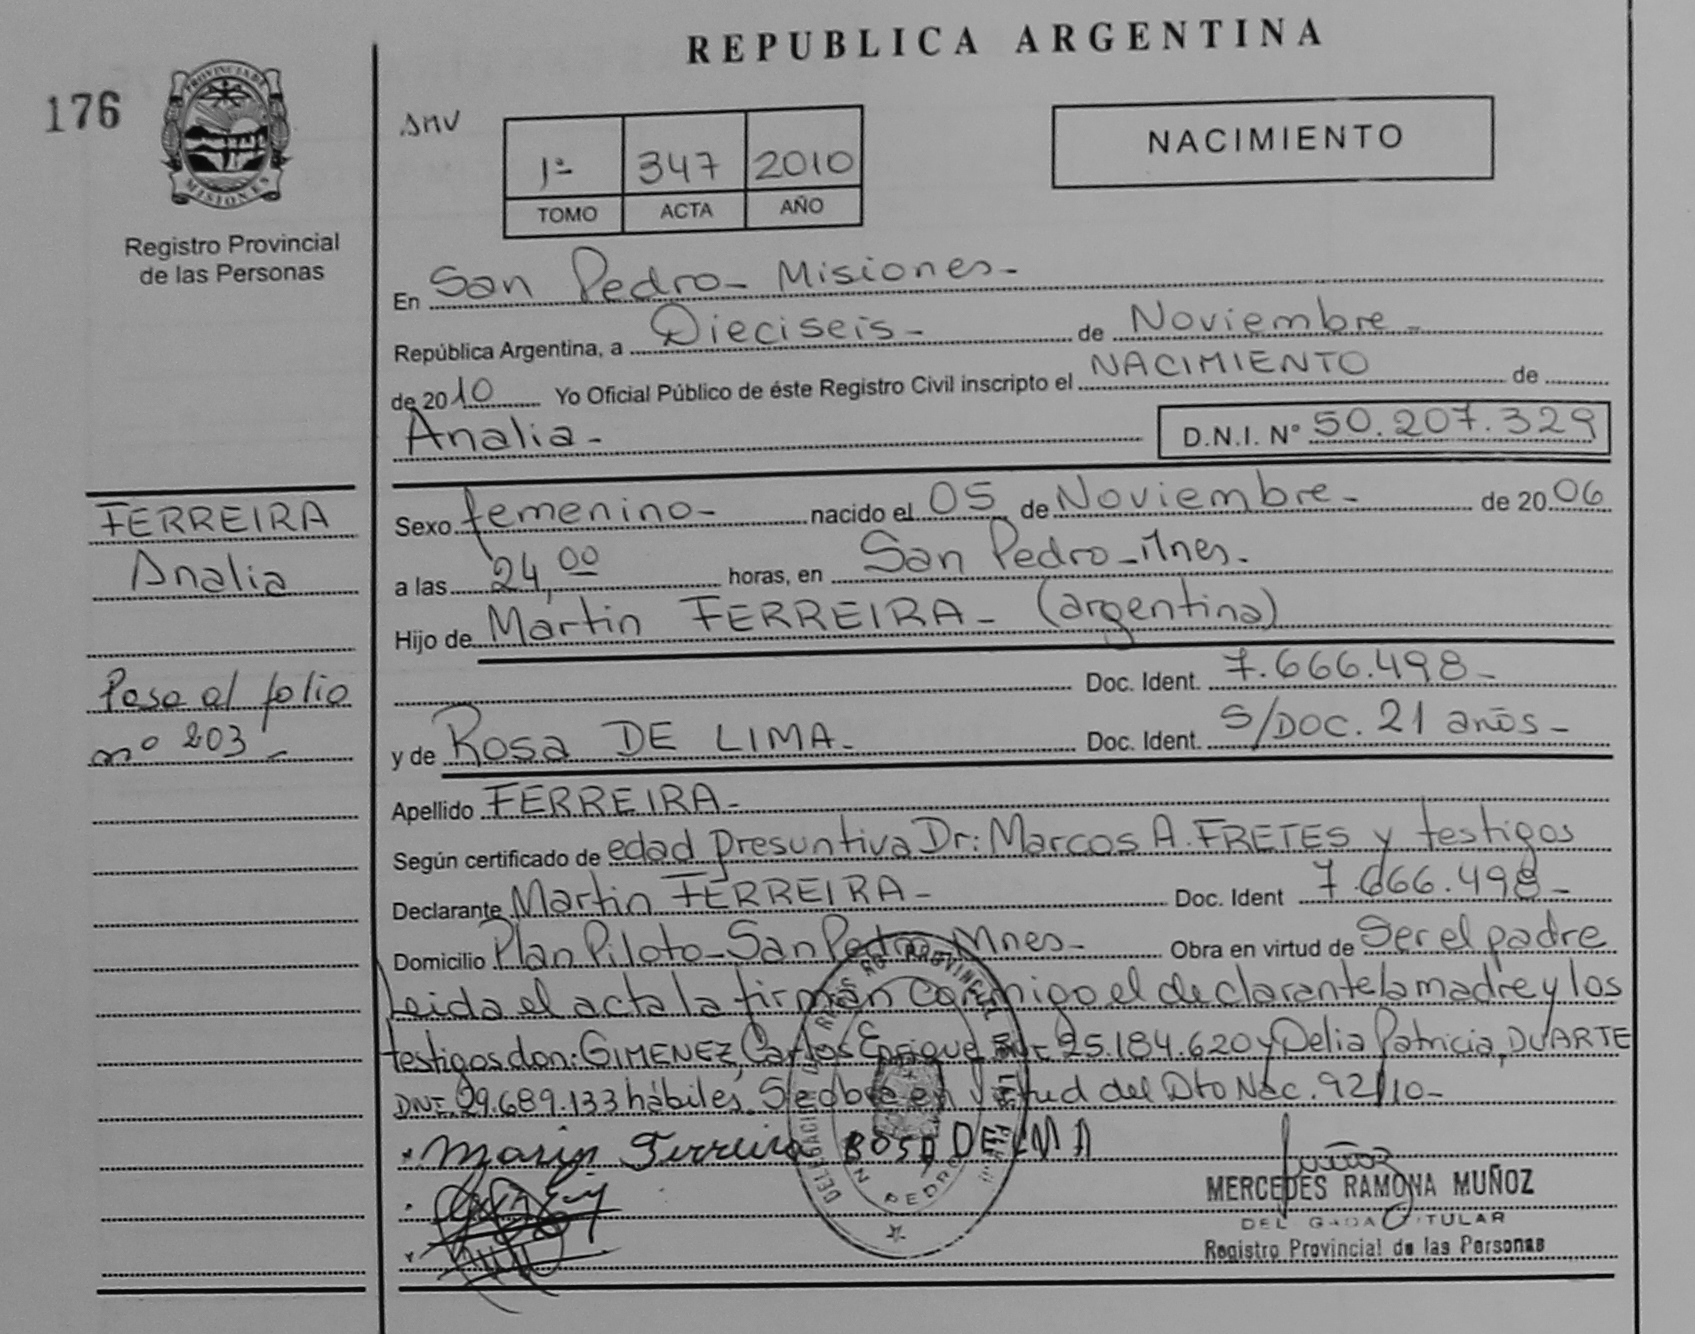 REPUBLICA ARGENTINA
176
PROVINCIA DE
MISIONES
Registro Provincial
de las Personas
1º 347 2010
TOMO ACTA AÑO
NACIMIENTO
En San Pedro - Misiones -
República Argentina, a Dieciseis - de Noviembre -
de 2010 Yo Oficial Público de éste Registro Civil inscripto el NACIMIENTO de
Analia - D.N.I. Nº 50.207.329
FERREIRA
Analia
Pasa al folio
nº 203 -
Sexo femenino - nacido el 05 de Noviembre - de 2006
a las 24,00 horas, en San Pedro - Mnes -
Hijo de Martin FERREIRA - (argentina)
Doc. Ident. 7.666.498 -
y de Rosa DE LIMA - Doc. Ident. S/DOC. 21 años -
Apellido FERREIRA -
Según certificado de edad presuntiva Dr: Marcos A. FRETES y testigos
Declarante Martin FERREIRA - Doc. Ident 7.666.498 -
Domicilio Plan Piloto - San Pedro - Mnes - Obra en virtud de Ser el padre
Leida el acta la firman conmigo el declarante la madre y los
testigos don: GIMENEZ, Carlos Enrique 25.184.620 y Delia Patricia, DUARTE
DNI. 29.689.133 hábiles. Se obra en virtud del Dto Nac. 92/10 -
Ferreira ROSA DE LIMA
MERCEDES RAMONA MUÑOZ
DELEGADA TITULAR
Registro Provincial de las Personas